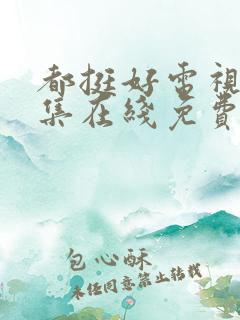 都挺好電視
集在綫免費
包心酥
未經同意禁止轉載